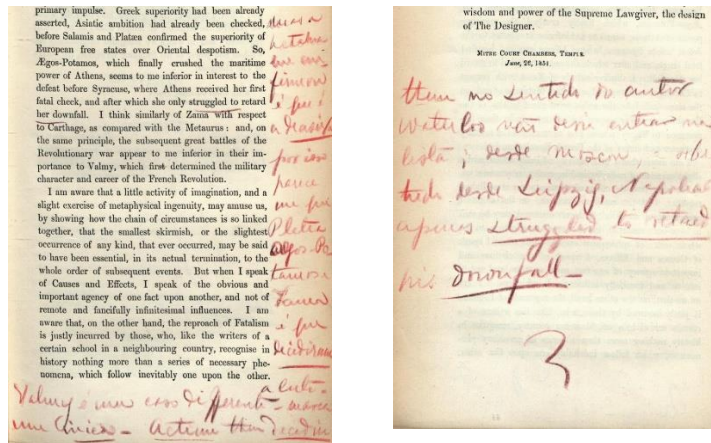 primary impulse. Greek superiority had been already
asserted, Asiatic ambition had already been checked,
before Salamis and Platæa confirmed the superiority of
European free states over Oriental despotism. So,
Ægos-Potamos, which finally crushed the maritime
power of Athens, seems to me inferior in interest to the
defeat before Syracuse, where Athens received her first
fatal check, and after which she only struggled to retard
her downfall. I think similarly of Zama with respect
to Carthage, as compared with the Metaurus: and, on
the same principle, the subsequent great battles of the
Revolutionary war appear to me inferior in their im-
portance to Valmy, which first determined the military
character and career of the French Revolution.
I am aware that a little activity of imagination, and a
slight exercise of metaphysical ingenuity, may amuse us,
by showing how the chain of circumstances is so linked
together, that the smallest skirmish, or the slightest
occurrence of any kind, that ever occurred, may be said
to have been essential, in its actual termination, to the
whole order of subsequent events. But when I speak
of Causes and Effects, I speak of the obvious and
important agency of one fact upon another, and not of
remote and fancifully infinitesimal influences. I am
aware that, on the other hand, the reproach of Fatalism
is justly incurred by those, who, like the writers of a
certain school in a neighbouring country, recognise in
history nothing more than a series of necessary phe-
nomena, which follow inevitably one upon the other.
é que
por isso
parece
me que
Zama
é que
Valmy é um caso differente
wisdom and power of the Supreme Lawgiver, the design
of The Designer.
MITRE COURT CHAMBERS, TEMPLE.
June, 26, 1851.
no sentido do autor
Waterloo não devia entrar na
lista; desde Moscou,
desde Leipzig, Napoleão
apenas struggled to retard
his downfall